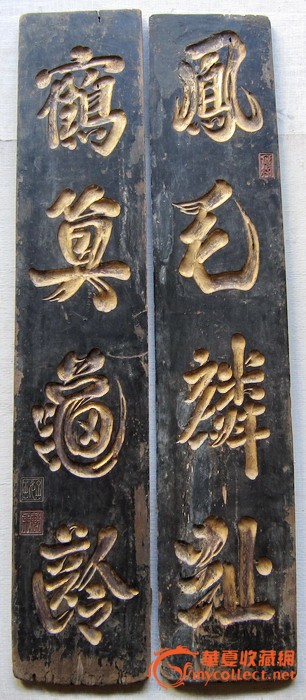 鳳毛麟趾
鶴算龜齡
華夏收藏網
mycollect.net